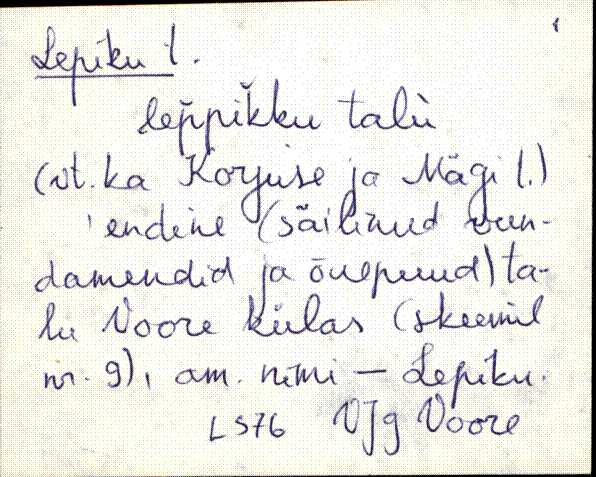 Lepiku t.
lep̆pik̆ku talù
(vt. ka Korjuse ja Mägi t.)
'endine (säilinud vun-
damendid ja õuepuud) ta-
lu Voore külas (skeemil
nr. 9), am. nimi — Lepiku.
LS76 VJg Voore